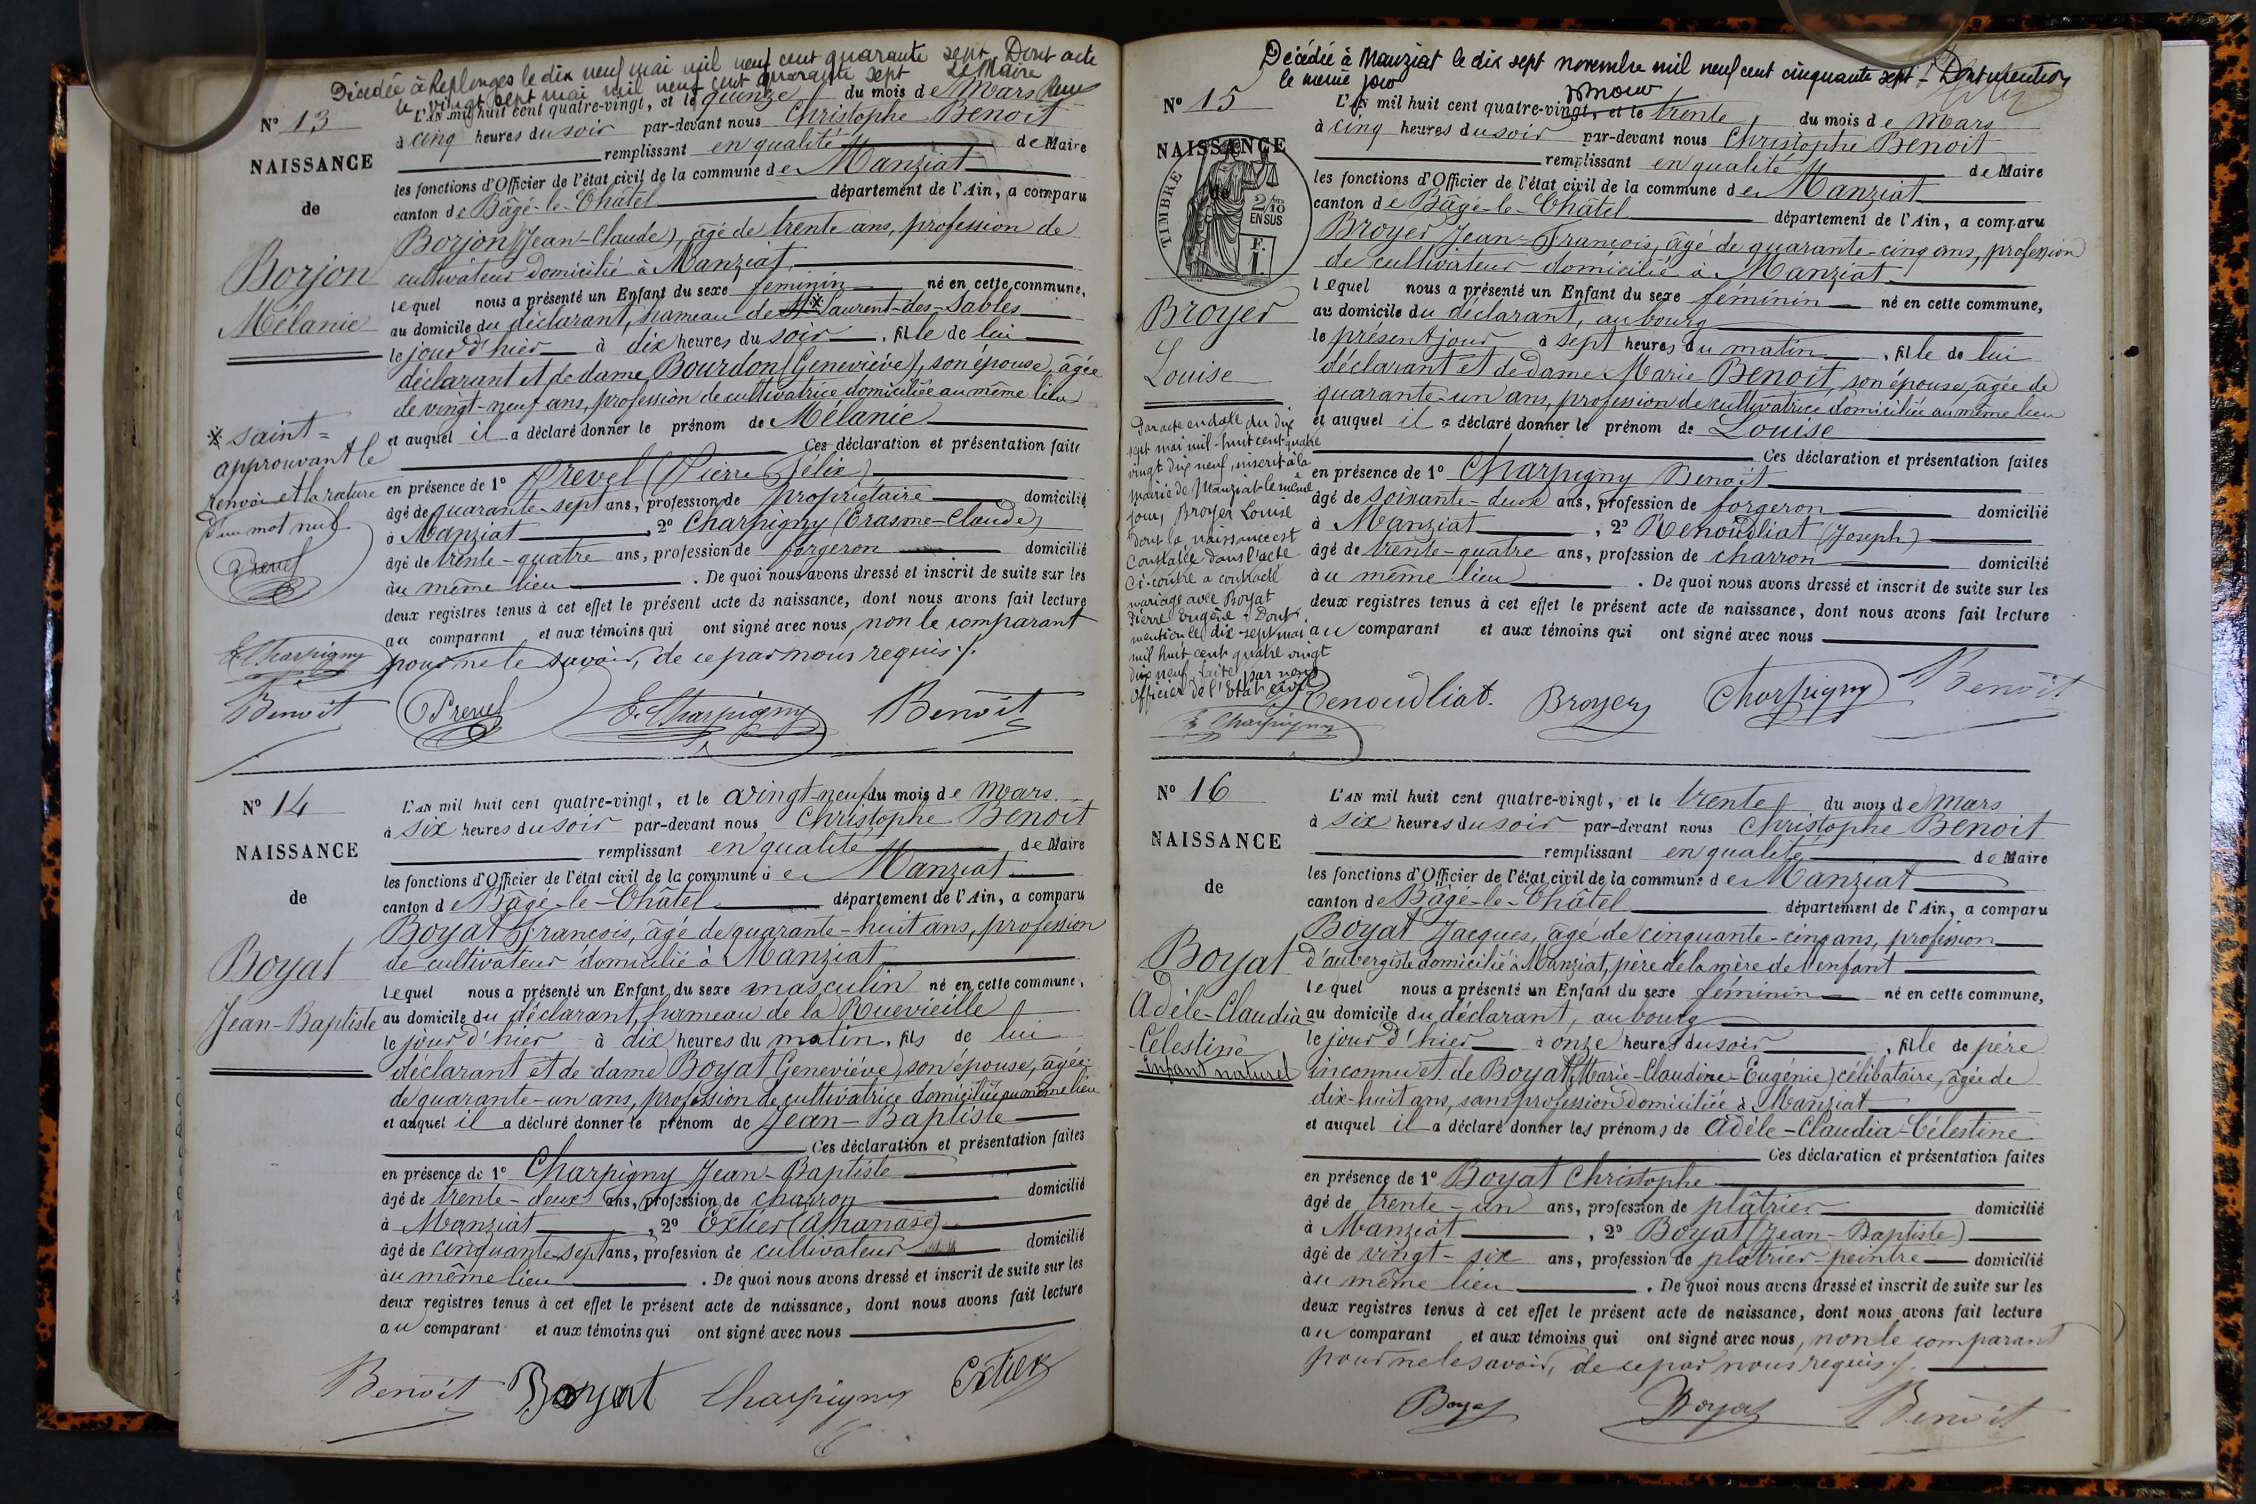 Décédée à Replonges le dix neuf mai mil neuf cent quarante sept. Dont acte
le vingt sept mai mil neuf cent quarante sept Le Maire
N° 13
NAISSANCE
de
Borjon
Mélanie
L'AN mil huit cent quatre-vingt, et le quinze du mois de Mars
à cinq heures du soir par-devant nous Christophe Benoit
remplissant en qualité de Maire
les fonctions d'Officier de l'état civil de la commune de Manziat
canton de Bâgé-le-Châtel département de l'Ain, a comparu
Borjon (Jean-Claude), âgé de trente ans, profession de
cultivateur domicilié à Manziat
lequel nous a présenté un Enfant du sexe féminin né en cette commune,
au domicile du déclarant, hameau de St x Laurent-des-Sables
le jour d'hier à dix heures du soir, fille de lui
déclarant et de dame Bourdon (Geneviève), son épouse, âgée
de vingt-neuf ans, profession de cultivatrice domiciliée au même lieu
et auquel il a déclaré donner le prénom de Mélanie
Ces déclaration et présentation faite
en présence de 1° Prevel (Pierre Félix)
âgé de quarante-sept ans, profession de propriétaire domicilié
à Manziat, 2° Charpigny (Erasme-Claude)
âgé de trente-quatre ans, profession de forgeron domicilié
au même lieu. De quoi nous avons dressé et inscrit de suite sur les
deux registres tenus à cet effet le présent acte de naissance, dont nous avons fait lecture
au comparant et aux témoins qui ont signé avec nous, non le comparant
pour ne le savoir, de ce par nous requis ./.
x saint=
approuvant le
renvoi et la rature
d'un mot nul
Prevel
E. Charpigny
Benoit
Prevel E. Charpigny Benoit
N° 14
NAISSANCE
de
Boyat
Jean-Baptiste
L'AN mil huit cent quatre-vingt, et le vingt-neuf du mois de Mars
à six heures du soir par-devant nous Christophe Benoit
remplissant en qualité de Maire
les fonctions d'Officier de l'état civil de la commune de Manziat
canton de Bâgé-le-Châtel département de l'Ain, a comparu
Boyat François, âgé de quarante-huit ans, profession
de cultivateur domicilié à Manziat
lequel nous a présenté un Enfant du sexe masculin né en cette commune,
au domicile du déclarant, hameau de la Ruevieille
le jour d'hier à dix heures du matin, fils de lui
déclarant et de dame Boyat Geneviève, son épouse, âgée
de quarante-un ans, profession de cultivatrice domiciliée au même lieu
et auquel il a déclaré donner le prénom de Jean-Baptiste
Ces déclaration et présentation faites
en présence de 1° Charpigny Jean-Baptiste
âgé de trente-deux ans, profession de charron domicilié
à Manziat, 2° Extier (Athanase)
âgé de cinquante-sept ans, profession de cultivateur domicilié
au même lieu. De quoi nous avons dressé et inscrit de suite sur les
deux registres tenus à cet effet le présent acte de naissance, dont nous avons fait lecture
au comparant et aux témoins qui ont signé avec nous
Benoit Boyat Charpigny Extier
Décédée à Manziat le dix sept novembre mil neuf cent cinquante sept - Dont mention
le même jour
N° 15
NAISSANCE
de
TIMBRE
2/10
EN SUS
Broyer
Louise
L'AN mil huit cent quatre-vingt, et le trente du mois de Mars
à cinq heures du soir par-devant nous Christophe Benoit
remplissant en qualité de Maire
les fonctions d'Officier de l'état civil de la commune de Manziat
canton de Bâgé-le-Châtel département de l'Ain, a comparu
Broyer Jean-François, âgé de quarante-cinq ans, profession
de cultivateur domicilié à Manziat
lequel nous a présenté un Enfant du sexe féminin né en cette commune,
au domicile du déclarant, au bourg
le présent jour à sept heures du matin, fille de lui
déclarant et de dame Marie Benoit, son épouse, âgée de
quarante-un ans, profession de cultivatrice domiciliée au même lieu
et auquel il a déclaré donner le prénom de Louise
Ces déclaration et présentation faites
en présence de 1° Charpigny Benoit
âgé de soixante-deux ans, profession de forgeron domicilié
à Manziat, 2° Renoudliat (Joseph)
âgé de trente-quatre ans, profession de charron domicilié
au même lieu. De quoi nous avons dressé et inscrit de suite sur les
deux registres tenus à cet effet le présent acte de naissance, dont nous avons fait lecture
au comparant et aux témoins qui ont signé avec nous
Par acte en date du dix
sept mai mil-huit cent quatre
vingt dix neuf, inscrit à la
mairie de Manziat le même
jour, Broyer Louise
dont la naissance est
constatée dans l'acte
ci-contre a contracté
mariage avec Boyat
Pierre Eugène. Dont
mention le dix-sept mai
mil huit cent quatre vingt
dix neuf, faite par nous
officier de l'Etat civil
E. Charpigny
Renoudliat. Broyer Charpigny Benoit
N° 16
NAISSANCE
de
Boyat
Adèle-Claudia
Célestine
Enfant naturel
L'AN mil huit cent quatre-vingt, et le trente du mois de Mars
à six heures du soir par-devant nous Christophe Benoit
remplissant en qualité de Maire
les fonctions d'Officier de l'état civil de la commune de Manziat
canton de Bâgé-le-Châtel département de l'Ain, a comparu
Boyat Jacques, âgé de cinquante-cinq ans, profession
d'aubergiste domicilié à Manziat, père de la mère de l'enfant
lequel nous a présenté un Enfant du sexe féminin né en cette commune,
au domicile du déclarant, au bourg
le jour d'hier à onze heures du soir, fille de père
inconnu et de Boyat (Marie-Claudine-Eugénie) célibataire, âgée de
dix-huit ans, sans profession domiciliée à Manziat
et auquel il a déclaré donner les prénoms de Adèle-Claudia-Célestine
Ces déclaration et présentation faites
en présence de 1° Boyat Christophe
âgé de trente-un ans, profession de plâtrier domicilié
à Manziat, 2° Boyat (Jean-Baptiste)
âgé de vingt-six ans, profession de plâtrier-peintre domicilié
au même lieu. De quoi nous avons dressé et inscrit de suite sur les
deux registres tenus à cet effet le présent acte de naissance, dont nous avons fait lecture
au comparant et aux témoins qui ont signé avec nous, non le comparant
pour ne le savoir, de ce par nous requis ./.
Boyat Boyat Benoit